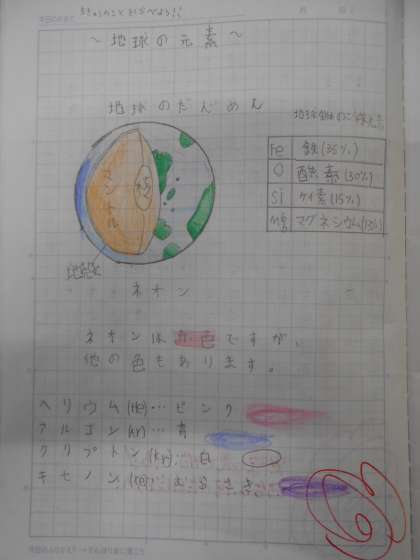 ちきゅうのことをしらべよう!!
～地球の元素～
地球のだんめん
Fe 鉄(35%)
O 酸素(30%)
Si ケイ素(15%)
Mg マグネシウム(13%)
マントル
核
地殻
ネオン
ネオンは赤色ですが、
他の色もあります。
ヘリウム(He)…ピンク
アルゴン(Ar)…青
クリプトン(Kr)…白
キセノン(Xe)…むらさき